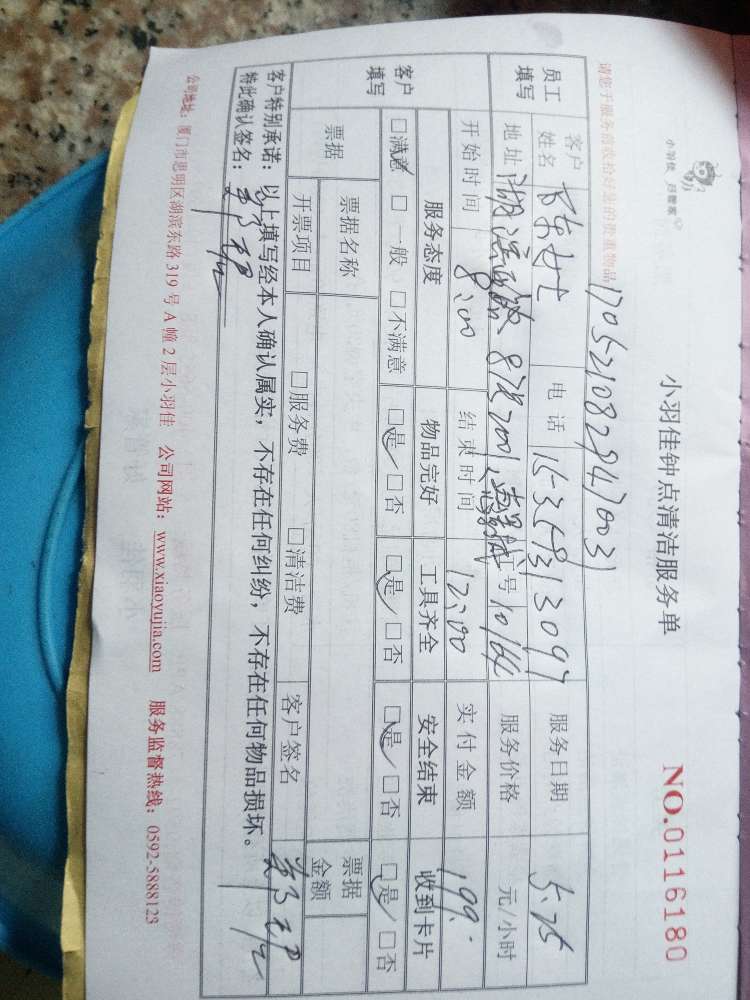 小羽佳 归管家
小羽佳钟点清洁服务单
NO.0116180
请您于服务前收拾好您的贵重物品
员工填写
客户姓名 陈女士 电话 服务日期 5.25
地址 湖滨 证号 服务价格 元/小时
开始时间 8:00 结束时间 12:00 实付金额 199.
客户填写
服务态度 物品完好 工具齐全 安全结束 收到卡片
□满意 □一般 □不满意 □是 □否 □是 □否 □是 □否 □是 □否
票据 票据名称 票据金额
开票项目 □服务费 □清洁费 客户签名
客户特别承诺:以上填写经本人确认属实,不存在任何纠纷,不存在任何物品损坏。
特此确认签名:
公司地址:厦门市思明区湖滨东路 319 号 A 幢 2 层小羽佳 公司网站:www.xiaoyujia.com 服务监督热线:0592-5888123